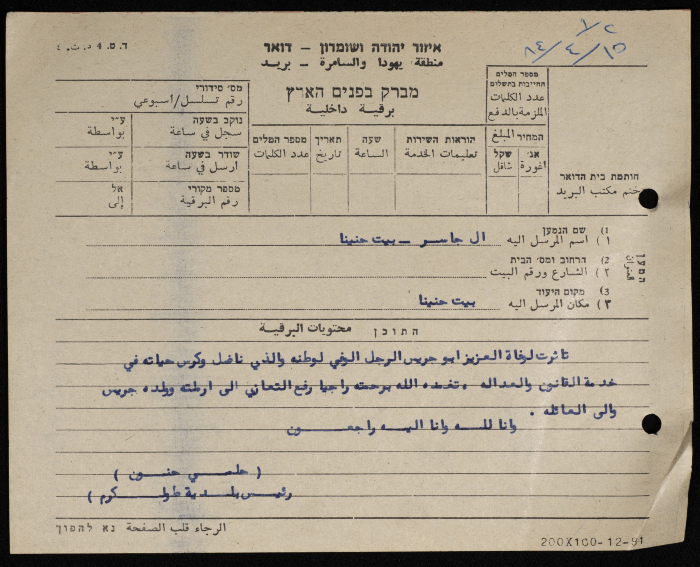 ד.ס. 4 د.ت.٤
אזור יהודה ושומרון - דואר
منطقة يهودا والسامرة - بريد
מברק בפנים הארץ
برقية داخلية
٨٤/٤/١٥
מספר המלים
החייבות בתשלום
عدد الكلمات
الملزمة بالدفع
המחיר المبلغ
אג' أغورة
שקל شاقل
הוראות השירות
تعليمات الخدمة
שעה
الساعة
תאריך
تاريخ
מספר המלים
عدد الكلمات
מס' סידורי
رقم تسلسل/اسبوعي
נוקב בשעה
سجل في ساعة
ע"י
بواسطة
שודר בשעה
ارسل في ساعة
ע"י
بواسطة
מספר מקורי
رقم البرقية
אל
إلى
חותמת בית הדואר
ختم مكتب البريد
המען
العنوان
1) שם הנמען
١) اسم المرسل اليه ال جاسر - بيت حنينا
2) הרחוב ומס' הבית
٢) الشارع ورقم البيت
3) מקום היעוד
٣) مكان المرسل اليه بيت حنينا
התוכן محتويات البرقية
تاثرت لوفاة العزيز ابو جريس الرجل الوفي لوطنه والذي ناضل وكرس حياته في
خدمة القانون والعدالة . تغمده الله برحمته راجيا رفع التعازي الى ارملته وولده جريس
والى العائله .
وانا لله وانا اليه راجعون
( حلمي حنون )
رئيس بلدية طولكرم )
الرجاء قلب الصفحة נא להפוך
200X100-12-81